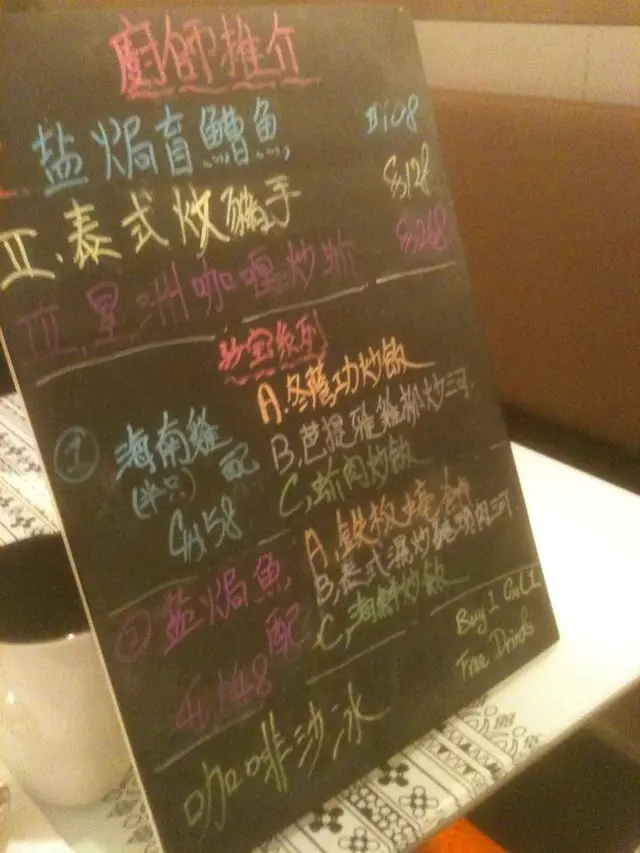 廚師推介
盐焗盲鰽魚 $108
II.泰式炒豬手 $128
III.星洲咖喱炒蚧 $268
孖宝系列
① 海南雞
(半只) 配
$158
A.冬蔭功炒飯
B.芭提雅雞柳炒河.
C,蚧肉炒飯
② 盐焗魚
配
$148
A.鉄板蠔餅
B,泰式濕炒豬頸肉河.
C,海鮮炒飯
Buy 1 Get 1
Free Drinks
咖啡沙冰